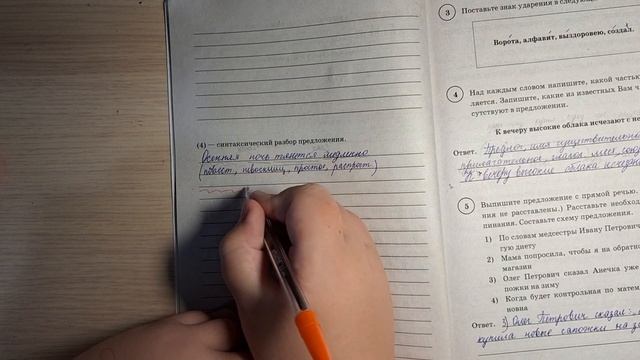 (4) — синтаксический разбор предложения.
Осенняя ночь тянется медленно
(повест., невосклиц., простое, распрост.)
3 Поставьте знак ударения в следующ
Воро́та, алфави́т, вы́здоровею, со́здал.
4 Над каждым словом напишите, какой часть
ляется. Запишите, какие из известных Вам ч
сутствуют в предложении.
К вечеру высокие облака исчезают с не
Ответ. Предлог, имя существительно
прилагательное, глагол
К вечеру высокие облака исчезаю
5 Выпишите предложение с прямой речью.
ния не расставлены.) Расставьте необход
пинания. Составьте схему предложения.
1) По словам медсестры Ивану Петрович
гую диету
2) Мама попросила, чтобы я на обратн
магазин
3) Олег Петрович сказал Анечка уже
пожки на зиму
4) Когда будет контрольная по матем
новна
Ответ. 3) Олег Петрович сказал:
купила новые сапожки на з